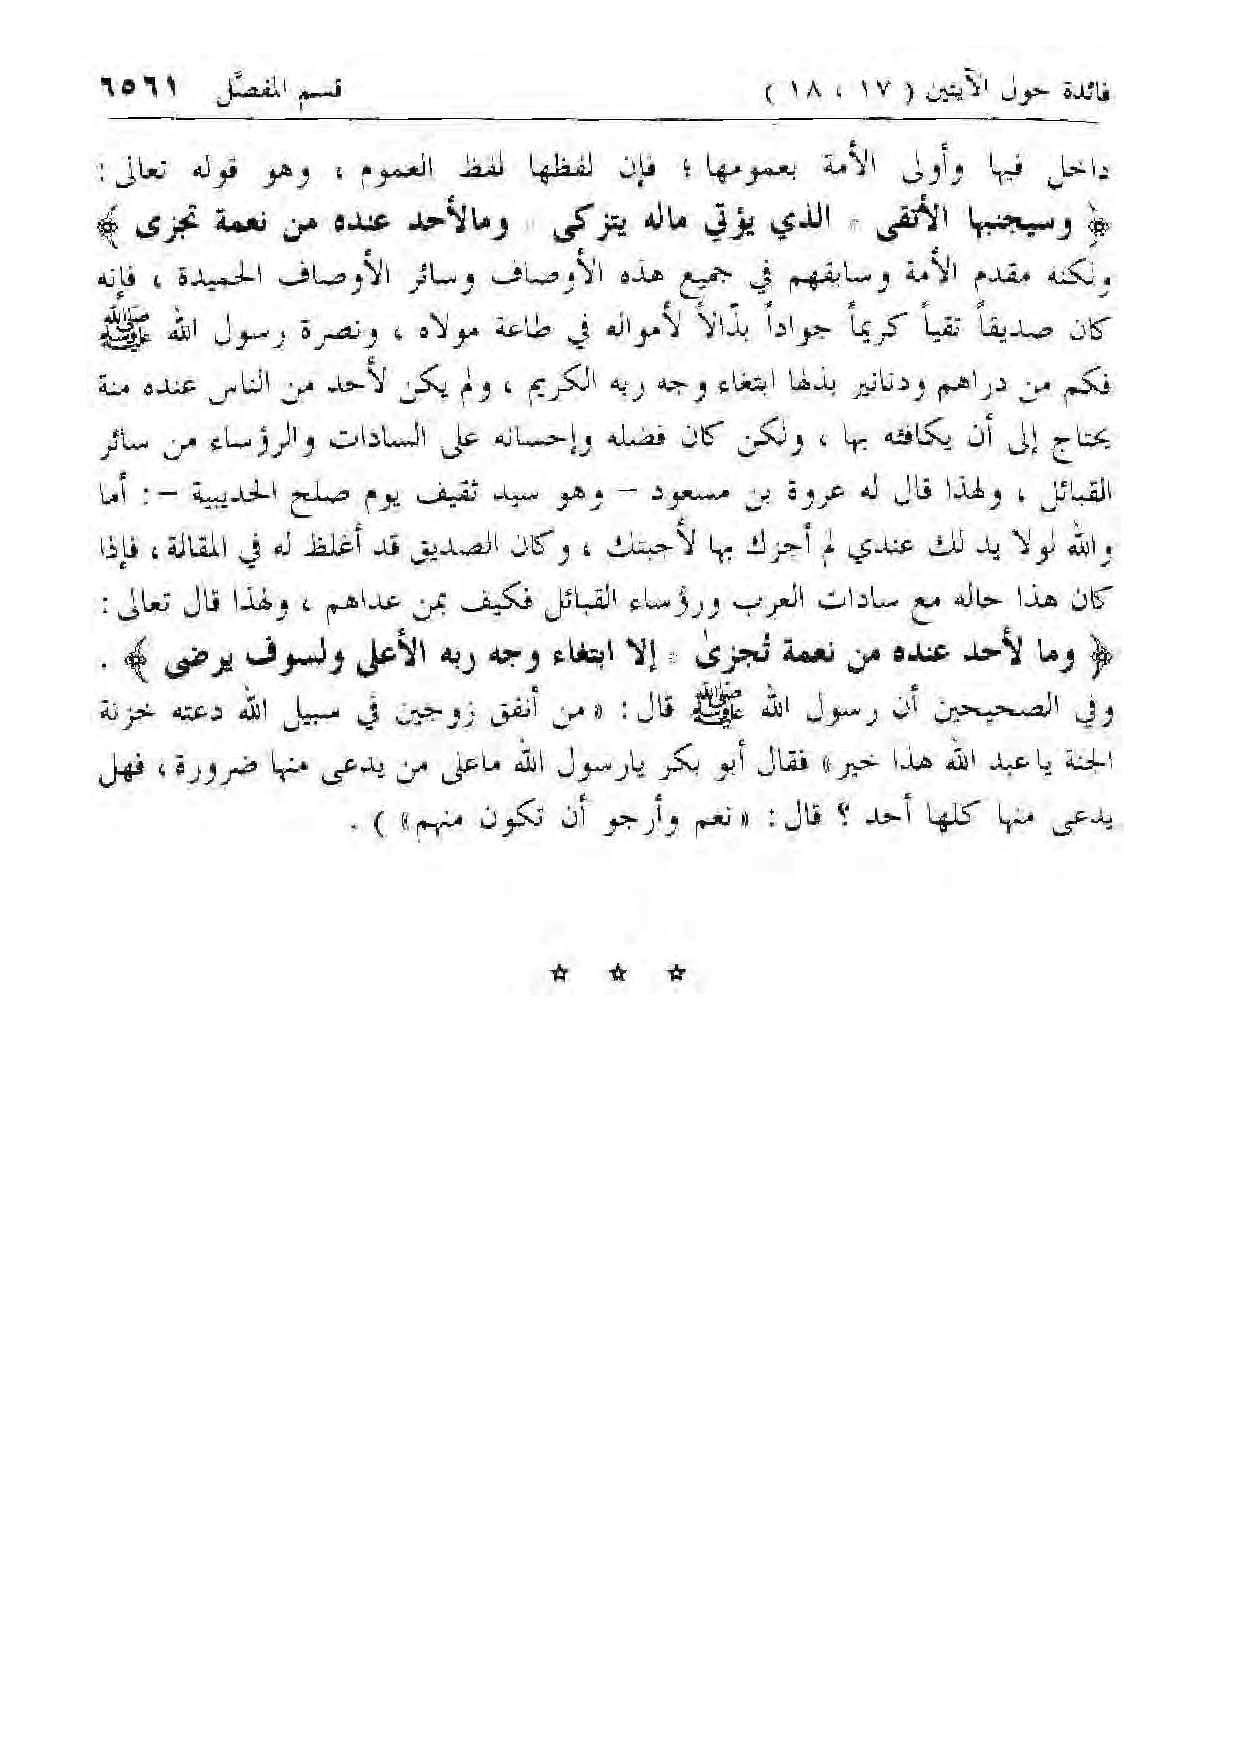 فائدة حول الآيتين ( ١٧ ، ١٨ ) قسم المفصَّل ٦٥٦١
داخل فيها وأولى الأمة بعمومها ؛ فإن لفظها لفظ العموم ، وهو قوله تعالى :
﴿ وسيجنبها الأتقى * الذي يؤتي ماله يتزكى * ومالأحد عنده من نعمة تجزى ﴾
ولكنه مقدم الأمة وسابقهم في جميع هذه الأوصاف وسائر الأوصاف الحميدة ، فإنه
كان صديقاً تقياً كريماً جواداً بذّالاً لأمواله في طاعة مولاه ، ونصرة رسول الله ﷺ
فكم من دراهم ودنانير بذلها ابتغاء وجه ربه الكريم ، ولم يكن لأحد من الناس عنده منة
يحتاج إلى أن يكافئه بها ، ولكن كان فضله وإحسانه على السادات والرؤساء من سائر
القبائل ، ولهذا قال له عروة بن مسعود – وهو سيد ثقيف يوم صلح الحديبية – : أما
والله لولا يد لك عندي لم أجزك بها لأجبتك ، وكان الصديق قد أغلظ له في المقالة ، فإذا
كان هذا حاله مع سادات العرب ورؤساء القبائل فكيف بمن عداهم ، ولهذا قال تعالى :
﴿ وما لأحد عنده من نعمة تُجزىٰ * إلا ابتغاء وجه ربه الأعلى ولسوف يرضى ﴾ .
وفي الصحيحين أن رسول الله ﷺ قال : « من أنفق زوجين في سبيل الله دعته خزنة
الجنة ياعبد الله هذا خير » فقال أبو بكر يارسول الله ماعلى من يدعى منها ضرورة ، فهل
يدعى منها كلها أحد ؟ قال : « نعم وأرجو أن تكون منهم » ) .
☆ ☆ ☆